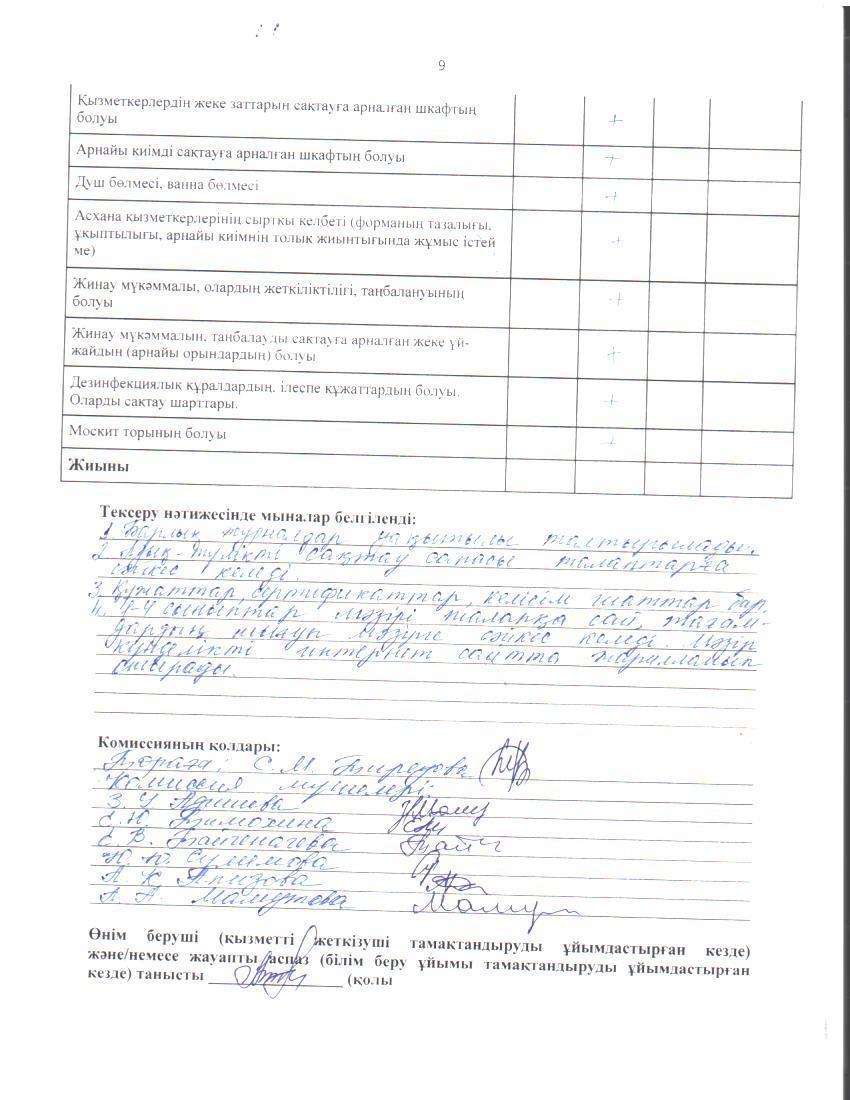 9
Қызметкерлердің жеке заттарын сақтауға арналған шкафтың
болуы +
Арнайы киімді сақтауға арналған шкафтың болуы +
Душ бөлмесі, ванна бөлмесі +
Асхана қызметкерлерінің сыртқы келбеті (форманың тазалығы,
ұқыптылығы, арнайы киімнің толық жиынтығында жұмыс істей +
ме)
Жинау мүкәммалы, олардың жеткіліктілігі, таңбалануының
болуы +
Жинау мүкәммалын, таңбалауды сақтауға арналған жеке үй-
жайдың (арнайы орындардың) болуы +
Дезинфекциялық құралдардың, ілеспе құжаттардың болуы.
Оларды сақтау шарттары. +
Москит торының болуы +
Жиыны
Тексеру нәтижесінде мыналар белгіленді:
1. Барлық журналдар уақытылы толтырылады.
2. Азық-түлікті сақтау сапасы талаптарға
сәйкес келеді.
3. Құжаттар, сертификаттар, келісім шарттар бар.
4. 1-4 сыныптар мәзірі талапқа сай, тағам-
дардың шығуы мәзірге сәйкес келеді. Мәзір
күнделікті интернет сайтта жарияланып
отырады.
Комиссияның қолдары:
Төраға: С. М.
Комиссия мүшелері:
З. У.
Е. Ю. Тимохина
Е. В.
Ю. Ю.
А. К.
А. А.
Өнім беруші (қызметті жеткізуші тамақтандыруды ұйымдастырған кезде)
және/немесе жауапты аспаз (білім беру ұйымы тамақтандыруды ұйымдастырған
кезде) танысты (қолы